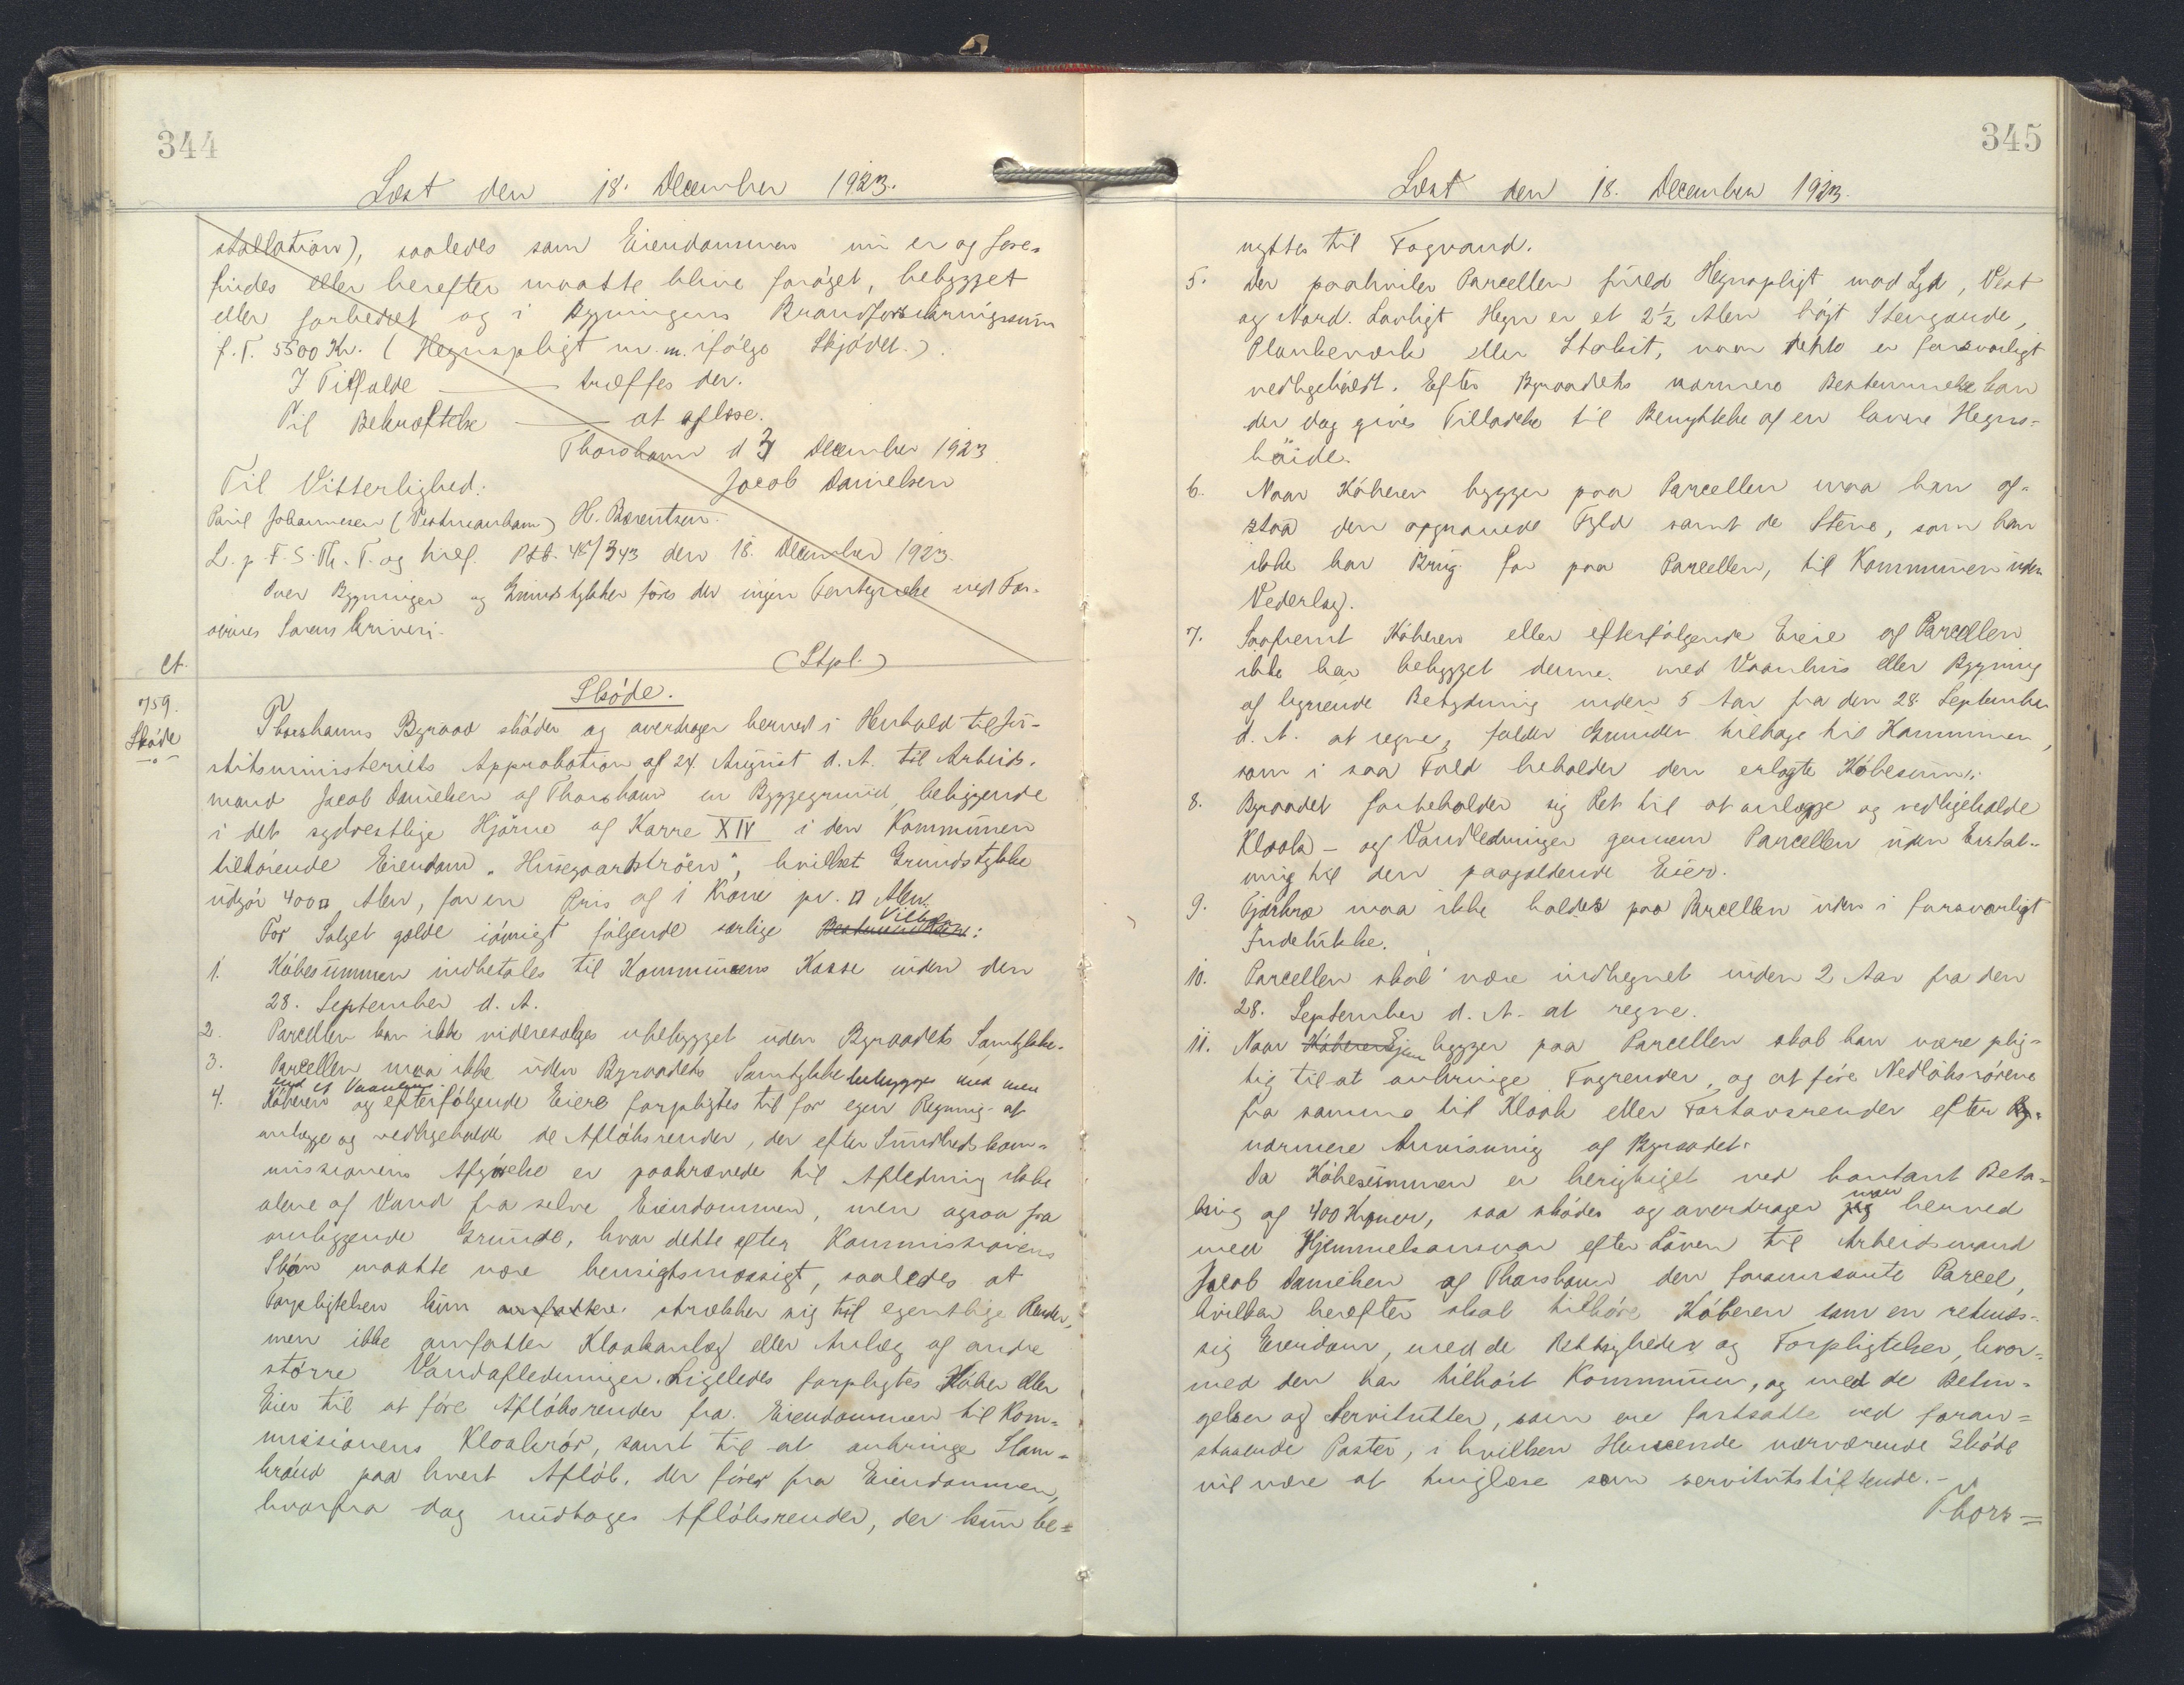 344
Læst den 18. December 1923.
stallation), saaledes som Eiendommen nu er og fore-
findes eller herefter maatte blive forøget, bebygget
eller forbedret og i Bygningens Brandforsikringssum
f. T. 5500 Kr. (Hegnspligt m. m. ifølge Skjødet.).
I Tilfælde ——— træffes der.
Til Bekræftelse ——— at aflæse.
Thorshavn d 3 December 1923
Til Vitterlighed: Jacob Danielsen
Poul Johannesen (Vestmanhavn) H. Bærentsen.
L. p. F. S. Th. T. og hief. Ptb. 48/343 den 18. December 1923.
Over Bygninger og Grundstykker føres der ingen Fortegnelse ved Fær-
øernes Sorenskriveri.
(Stpl.)
Ct.
759.
Skøde
Skøde.
Thorshavns Byraad skøder og overdrager herved i Henhold til Ju-
stitsministeriets Approbation af 24. August d. A. til Arbeids-
mand Jacob Danielsen af Thorshavn en Byggegrund, beliggende
i det sydvestlige Hjørne af Karre XIV i den Kommunen
tilhørende Eiendom "Husegaardstrøen", hvilket Grundstykke
udgør 400 □ Alen, for en Pris af 1 Krone pr. □ Alen.
For Salget gælde iøvrigt følgende særlige Bestemmelser Vilkaar:
1. Købesummen indbetales til Kommunens Kasse inden den
28. September d. A.
2. Parcellen kan ikke videresælges ubebygget uden Byraadets Samtykke.
3. Parcellen maa ikke uden Byraadets Samtykke bebygges med mere
end et Vaanhus.
4. Køberen og efterfølgende Eiere forpligtes til for egen Regning at
anlægge og vedligeholde de Afløbsrender, der efter Sundhedskom-
missionens Afgørelse er paakrævede til Afledning ikke
alene af Vand fra selve Eiendommen, men ogsaa fra
omliggende Grunde, hvor dette efter Kommissionens
Skøn maatte være hensigtsmæssigt, saaledes at
Forpligtelsen kun omfatter strækker sig til egentlige Render,
men ikke omfatter Kloakanlæg eller Anlæg af andre
større Vandafledninger. Ligeledes forpligtes Køber eller
Eier til at føre Afløbsrender fra Eiendommen til Kom-
missionens Kloakrør, samt til at anbringe Slam-
brønd paa hvert Afløb, der føres fra Eiendommen,
hvorfra dog undtages Afløbsrender, der kun be-
345
Læst den 18. December 1923.
nyttes til Tagvand.
5. Der paahviler Parcellen fuld Hegnspligt mod Syd, Vest
og Nord. Lovligt Hegn er et 2½ Alen højt Stengærde,
Plankeværk eller Stakit, naar dette er forsvarligt
vedligeholdt. Efter Byraadets nærmere Bestemmelse kan
der dog gives Tilladelse til Benyttelse af en lavere Hegns-
høide.
6. Naar Køberen bygger paa Parcellen maa han af-
staa den opgravede Fyld samt de Stene, som han
ikke har Brug for paa Parcellen, til Kommunen uden
Vederlag.
7. Saafremt Køberen eller efterfølgende Eiere af Parcellen
ikke har bebygget denne med Vaanhus eller Bygning
af lignende Betydning inden 5 Aar fra den 28. September
d. A. at regne, falder Grunden tilbage til Kommunen,
som i saa Fald beholder den erlagte Købesum.
8. Byraadet forbeholder sig Ret til at anlægge og vedligeholde
Kloak- og Vandledninger gennem Parcellen uden Erstat-
ning til den paagældende Eier.
9. Fjerkræ maa ikke holdes paa Parcellen uden i forsvarligt
Indelukke.
10. Parcellen skal være indhegnet inden 2 Aar fra den
28. September d. A. at regne.
11. Naar Køberen Ejeren bygger paa Parcellen skal han være plig-
tig til at anbringe Tagrender, og at føre Nedløbsrørene
fra samme til Kloak eller Fortovsrender efter By-
nærmere Anvisning af Byraadet.
Da Købesummen er berigtiget ved kontant Beta-
ling af 400 Kroner, saa skøder og overdrager jeg man herved
med Hjemmelsansvar efter Loven til Arbeidsmand
Jacob Danielsen af Thorshavn den forannævnte Parcel,
hvilken herefter skal tilhøre Køberen som en retmæs-
sig Eiendom, med de Rettigheder og Forpligtelser, hvor-
med den har tilhørt Kommunen, og med de Betin-
gelser og Servitutter, som ere fastsatte ved foran-
staaende Poster, i hvilken Henseende nærværende Skøde
vil være at tinglæse som servitutstiftende.-
Thors=